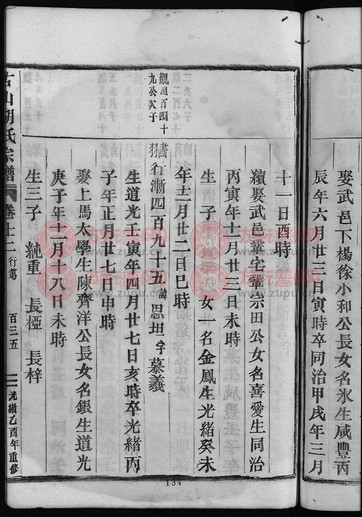 娶武邑下楊徐小和公長女名氷生咸豐丙
辰年六月廿二日寅時卒同治甲戌年三月
十一日酉時
續娶武邑華宅華宗田公女名喜愛生同治
丙寅年十一月廿三日未時
生一子 女一名金鳳生光緒癸未
年十二月廿二日巳時
觀 百四十
九公次子
行漸四百九十五 諱思坦字慕義
生道光壬寅年四月廿七日亥時卒光緒丙
子年正月廿七日申時
娶上馬太學生陳齊洋公長女名銀生道光
庚子年十一月十八日未時
生三子 純重 長極 長梓
古山胡氏宗譜 卷十二 行第 百三五 光緒乙酉年重修
134